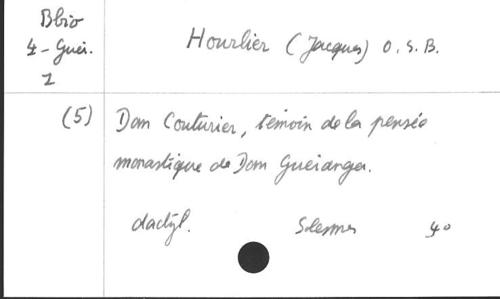 Bbio
4 - Guér.
1
Hourlier (Jacques) O. S. B.
(5) Dom Couturier, témoin de la pensée
monastique de Dom Guéranger.
dactyl. Solesmes 4°